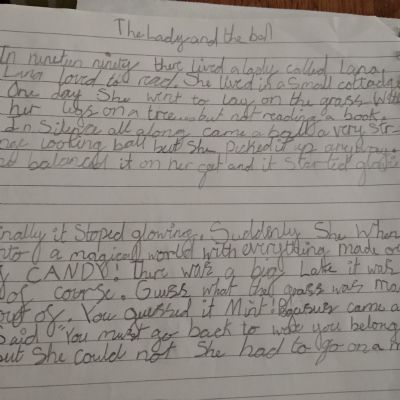 The Lady and the ball
In nineten ninety there lived a lady called Lana.
Lana loved to read. She lived in a small cottadge
One day She went to lay on the grass With
her legs on a tree but not reading a book.
In Silence all along came a ball a very str-
nge looking ball but She picked it up anyway.
She balanced it on her and it started glowing
inally it Stoped glowing. Suddenly She When
into a magical world with everything made o
f CANDY! There was a big Lake it was
of course. Guess what the grass was ma
out of. You guessed it Mint! came a
Said "You must go back to were you belong
but She could not She had to go on a m